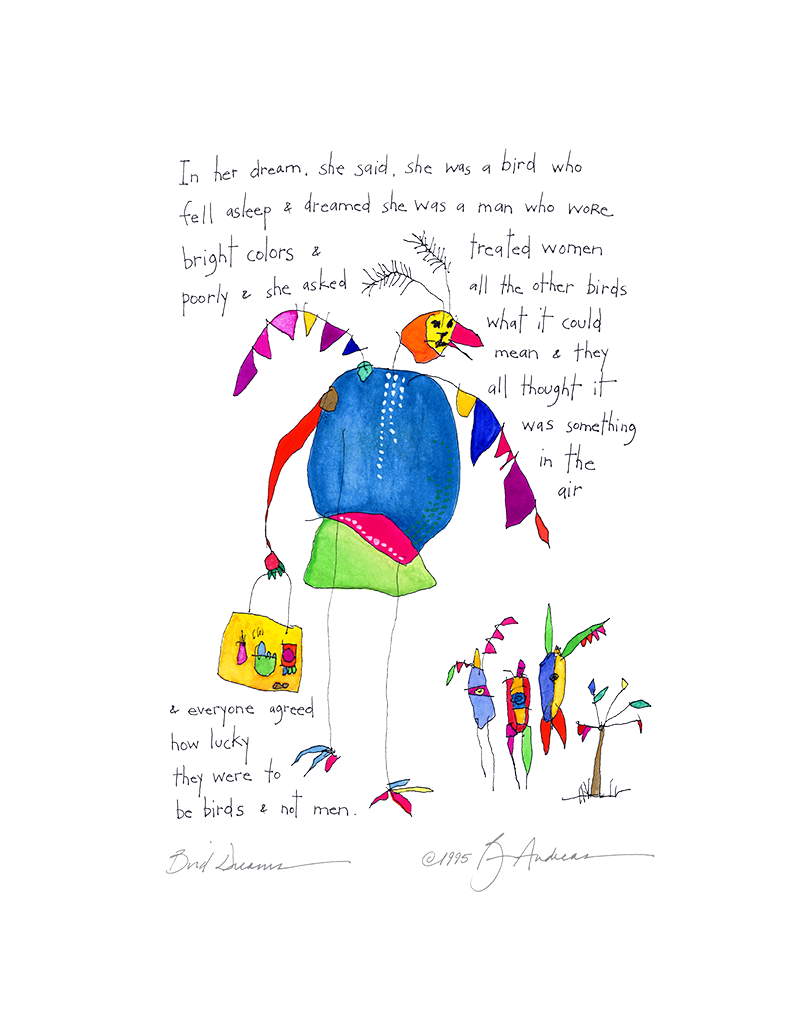 In her dream, she said, she was a bird who
fell asleep & dreamed she was a man who wore
bright colors & treated women
poorly & she asked all the other birds
what it could
mean & they
all thought it
was something
in the
air
& everyone agreed
how lucky
they were to
be birds & not men.
Bird Dreams
©1995 B Andreas